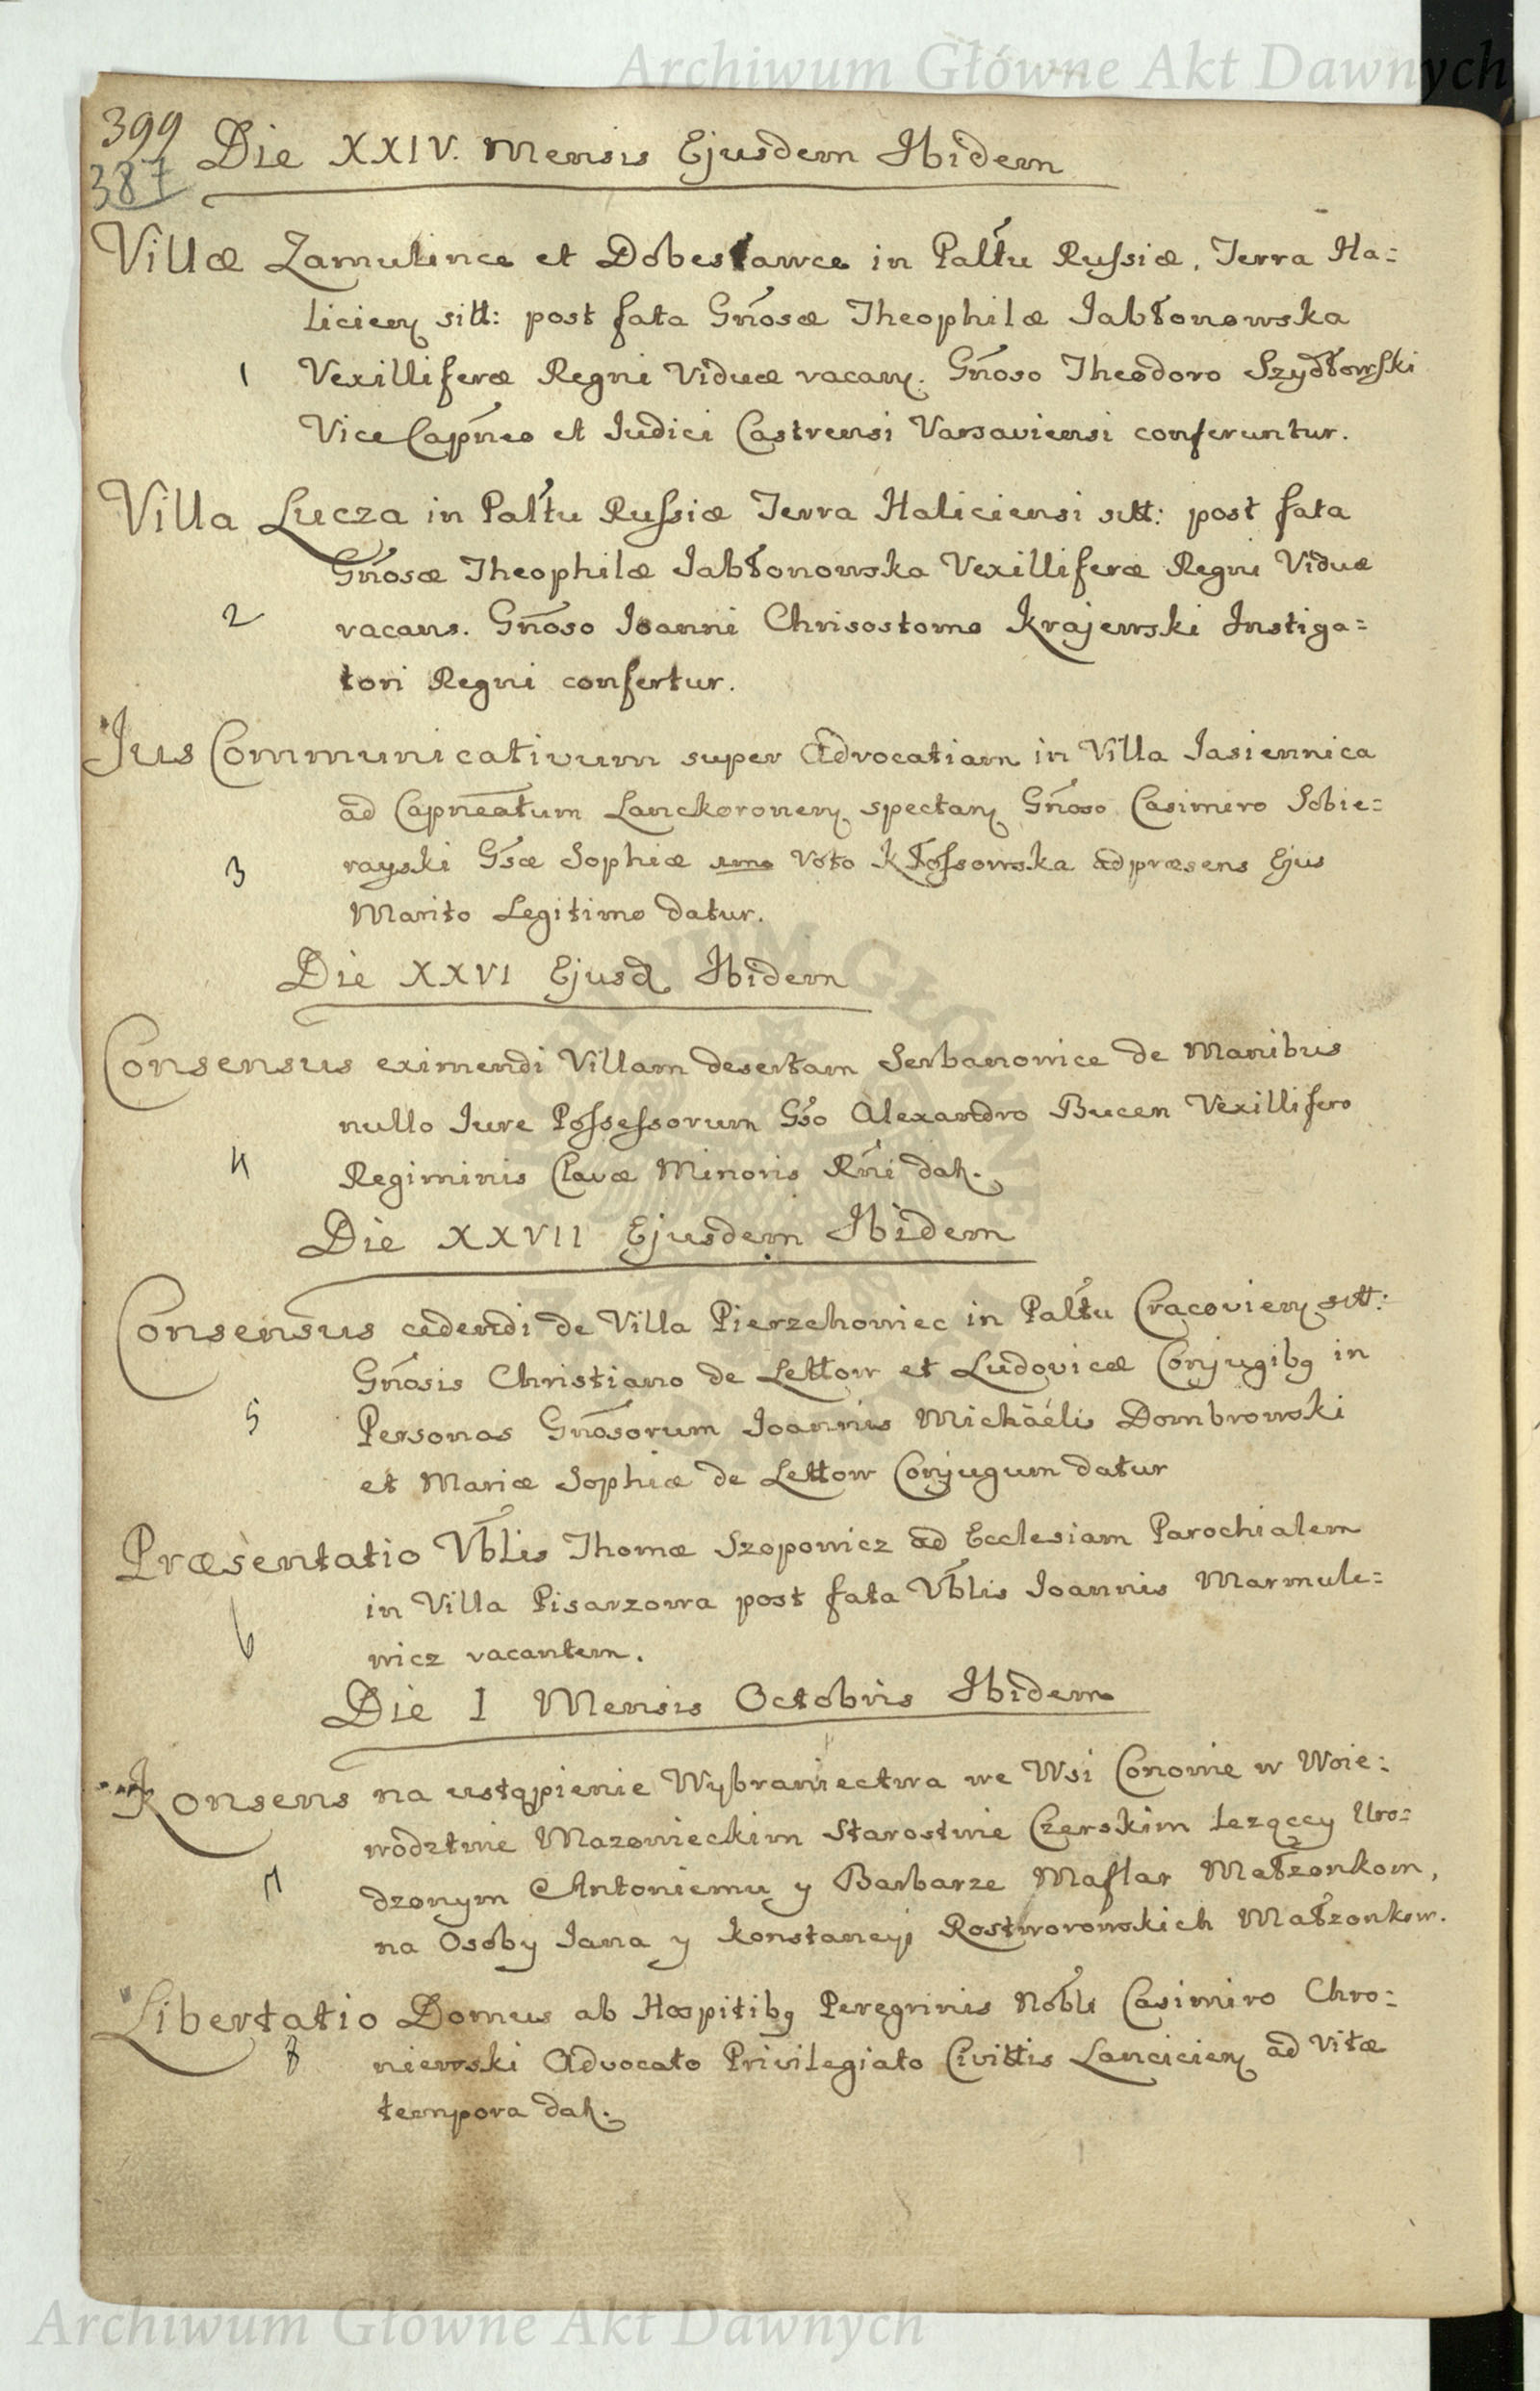 Archiwum Główne Akt Dawnych
399
387
Die XXIV. Mensis Ejusdem Ibidem
Villæ Zamulince et Dobesławce in Paltu Russiæ, Terra Ha=
licien sitt: post fata Gñosæ Theophilæ Jabłonowska
1 Vexilliferæ Regni Viduæ vacan. Gñoso Theodoro Szydłowski
Vice Capneo et Judici Castrensi Varsaviensi conferuntur.
Villa Lucza in Paltu Russiæ Terra Haliciensi sitt: post fata
Gñosæ Theophilæ Jabłonowska Vexilliferæ Regni Viduæ
2 vacans. Gñoso Ioanni Chrisostomo Krajewski Instiga=
tori Regni confertur.
Jus Communicativum super Advocatiam in Villa Jasiennica
ad Capneatum Lanckoronen spectan Gñoso Casimiro Sobie=
3 rayski Gsæ Sophiæ 1mo Voto Kłossowska adpræsens Ejus
Marito Legitimo datur.
Die XXVI Ejusd Ibidem
Consensus eximendi Villam desertam Serbanowice de Manibus
nullo Jure Possessorum Gso Alexandro Bucen Vexillifero
4 Regiminis Clavæ Minoris Rni dat.
Die XXVII Ejusdem Ibidem
Consensus cedendi de Villa Pierzchowiec in Paltu Cracovien sitt:
Gñosis Christiano de Lettow et Ludovicæ Conjugibq in
5 Personas Gñosorum Joannis Michaélis Dombrowski
et Mariæ Sophiæ de Lettow Conjugum datur
Præsentatio Vblis Thomæ Szopowicz ad Ecclesiam Parochialem
6 in Villa Pisarzowa post fata Vblis Joannis Marmule=
wicz vacantem.
Die I Mensis Octobris Ibidem
Konsens na ustąpienie Wybraniectwa we Wsi Conowie w Woie:
wodztwie Mazowieckim Starostwie Czerskim leząccy Uro=
7 dzonym Antoniemu y Barbarze Maslar Małzonkom,
na Osoby Jana y Konstancyi Rostworowskich Małzonkow.
Libertatio Domus ab Hospitibq Peregrinis Nobli Casimiro Chro=
8 niewski Advocato Privilegiato Civittis Lancicien ad Vitæ
tempora dat.
Archiwum Główne Akt Dawnych